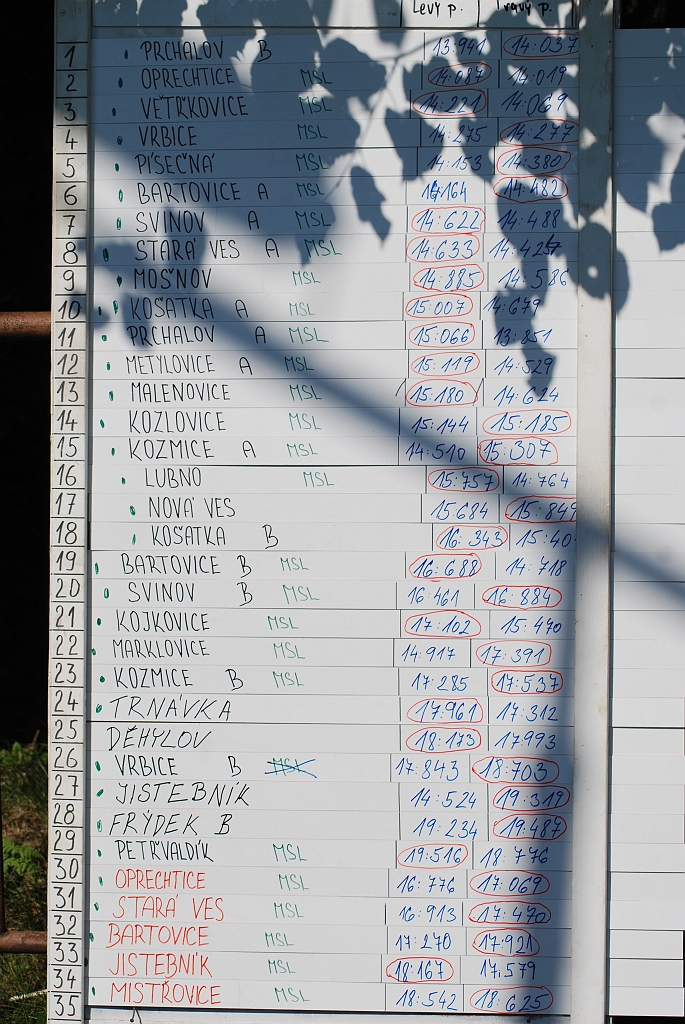 Levý p. Pravý p.
1 PRCHALOV B 13:941 14:037
2 OPRECHTICE MSL 14:087 14:019
3 VĚTŘKOVICE MSL 14:221 14:069
4 VRBICE MSL 14:275 14:277
5 PÍSEČNÁ MSL 14:153 14:380
6 BARTOVICE A MSL 14:164 14:482
7 SVINOV A MSL 14:622 14:488
8 STARÁ VES A MSL 14:633 14:427
9 MOŠNOV MSL 14:885 14:586
10 KOŠATKA A MSL 15:007 14:679
11 PRCHALOV A MSL 15:066 13:851
12 METYLOVICE A MSL 15:119 14:529
13 MALENOVICE MSL 15:180 14:624
14 KOZLOVICE MSL 15:144 15:185
15 KOZMICE A MSL 14:510 15:307
16 LUBNO MSL 15:757 14:764
17 NOVÁ VES 15:684 15:849
18 KOŠATKA B 16:343 15:40
19 BARTOVICE B MSL 16:688 14:718
20 SVINOV B MSL 16:461 16:884
21 KOJKOVICE MSL 17:102 15:470
22 MARKLOVICE MSL 14:917 17:391
23 KOZMICE B MSL 17:285 17:537
24 TRNÁVKA 17:961 17:312
25 DĚHYLOV 18:173 17:993
26 VRBICE B MSL 17:843 18:703
27 JISTEBNÍK 14:524 19:319
28 FRÝDEK B 19:234 19:487
29 PETŘVALDÍK MSL 19:516 18:776
30 OPRECHTICE MSL 16:776 17:069
31 STARÁ VES MSL 16:913 17:470
32 BARTOVICE MSL 17:270 17:921
33 JISTEBNÍK MSL 18:167 17:579
34 MISTŘOVICE MSL 18:542 18:625
35